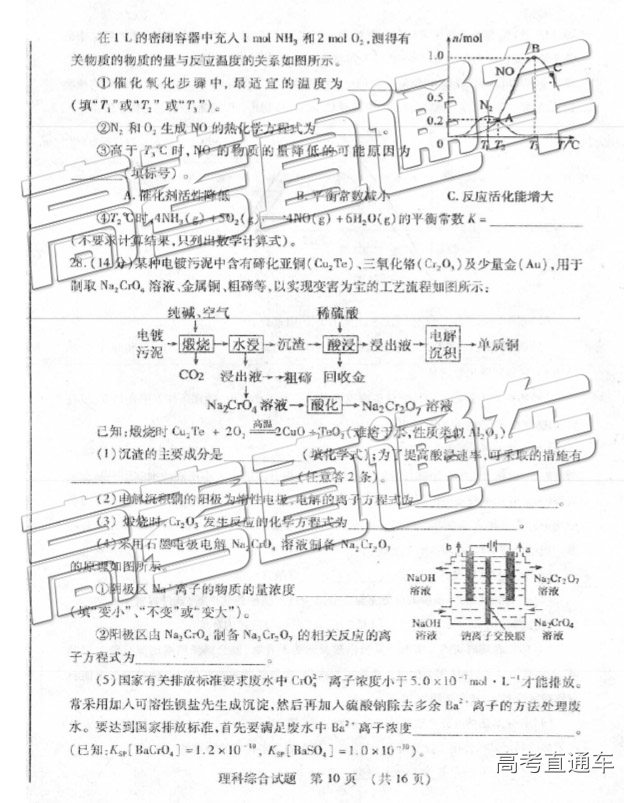 在1 L的密闭容器中充入1 mol NH₃ 和2 mol O₂,测得有
关物质的物质的量与反应温度的关系如图所示。
①催化氧化步骤中,最适宜的温度为
(填“T₁”或“T₂”或“T₃”)。
②N₂ 和O₂ 生成NO的热化学方程式为________。
③高于T₃℃时,NO的物质的量降低的可能原因为
________(填标号)。
A. 催化剂活性降低 B. 平衡常数减小 C. 反应活化能增大
④T₂℃时,4NH₃(g)+5O₂(g)══4NO(g)+6H₂O(g)的平衡常数K=________
(不要求计算结果,只列出数学计算式)。
n/mol
1.0
0.5
0.2
B
C
NO
N₂
A
0
T₁ T₂ T₃ T/℃
28. (14分)某种电镀污泥中含有碲化亚铜(Cu₂Te)、三氧化铬(Cr₂O₃)及少量金(Au),用于
制取Na₂CrO₄ 溶液、金属铜、粗碲等,以实现变害为宝的工艺流程如图所示:
纯碱、空气 稀硫酸
电镀污泥→煅烧→水浸→沉渣→酸浸→浸出液→电解沉积→单质铜
CO2 浸出液→→粗碲 回收金
Na₂CrO₄ 溶液→酸化→Na₂Cr₂O₇ 溶液
已知:煅烧时Cu₂Te + 2O₂ 高温══2CuO+TeO₂(难溶于水,性质类似Al₂O₃)。
(1)沉渣的主要成分是________(填化学式);为了提高酸浸速率,可采取的措施有
________(任意答2条)。
(2)电解沉积铜的阳极为惰性电极,电解的离子方程式为________。
(3)煅烧时,Cr₂O₃ 发生反应的化学方程式为________。
(4)采用石墨电极电解Na₂CrO₄ 溶液制备Na₂Cr₂O₇
的原理如图所示。
①阴极区Na⁺离子的物质的量浓度________
(填“变小”、“不变”或“变大”)。
②阳极区由Na₂CrO₄ 制备Na₂Cr₂O₇ 的相关反应的离
子方程式为________。
b a
NaOH溶液 Na₂Cr₂O₇溶液
NaOH溶液 钠离子交换膜 Na₂CrO₄溶液
(5)国家有关排放标准要求废水中CrO₄²⁻ 离子浓度小于5.0×10⁻⁷mol·L⁻¹才能排放。
常采用加入可溶性钡盐先生成沉淀,然后再加入硫酸钠除去多余Ba²⁺离子的方法处理废
水。要达到国家排放标准,首先要满足废水中Ba²⁺离子浓度________。
(已知:Ksp[BaCrO₄]=1.2×10⁻¹⁰, Ksp[BaSO₄]=1.0×10⁻¹⁰)。
理科综合试题 第10页 (共16页)
高考直通车
高考直通车
高考直通车